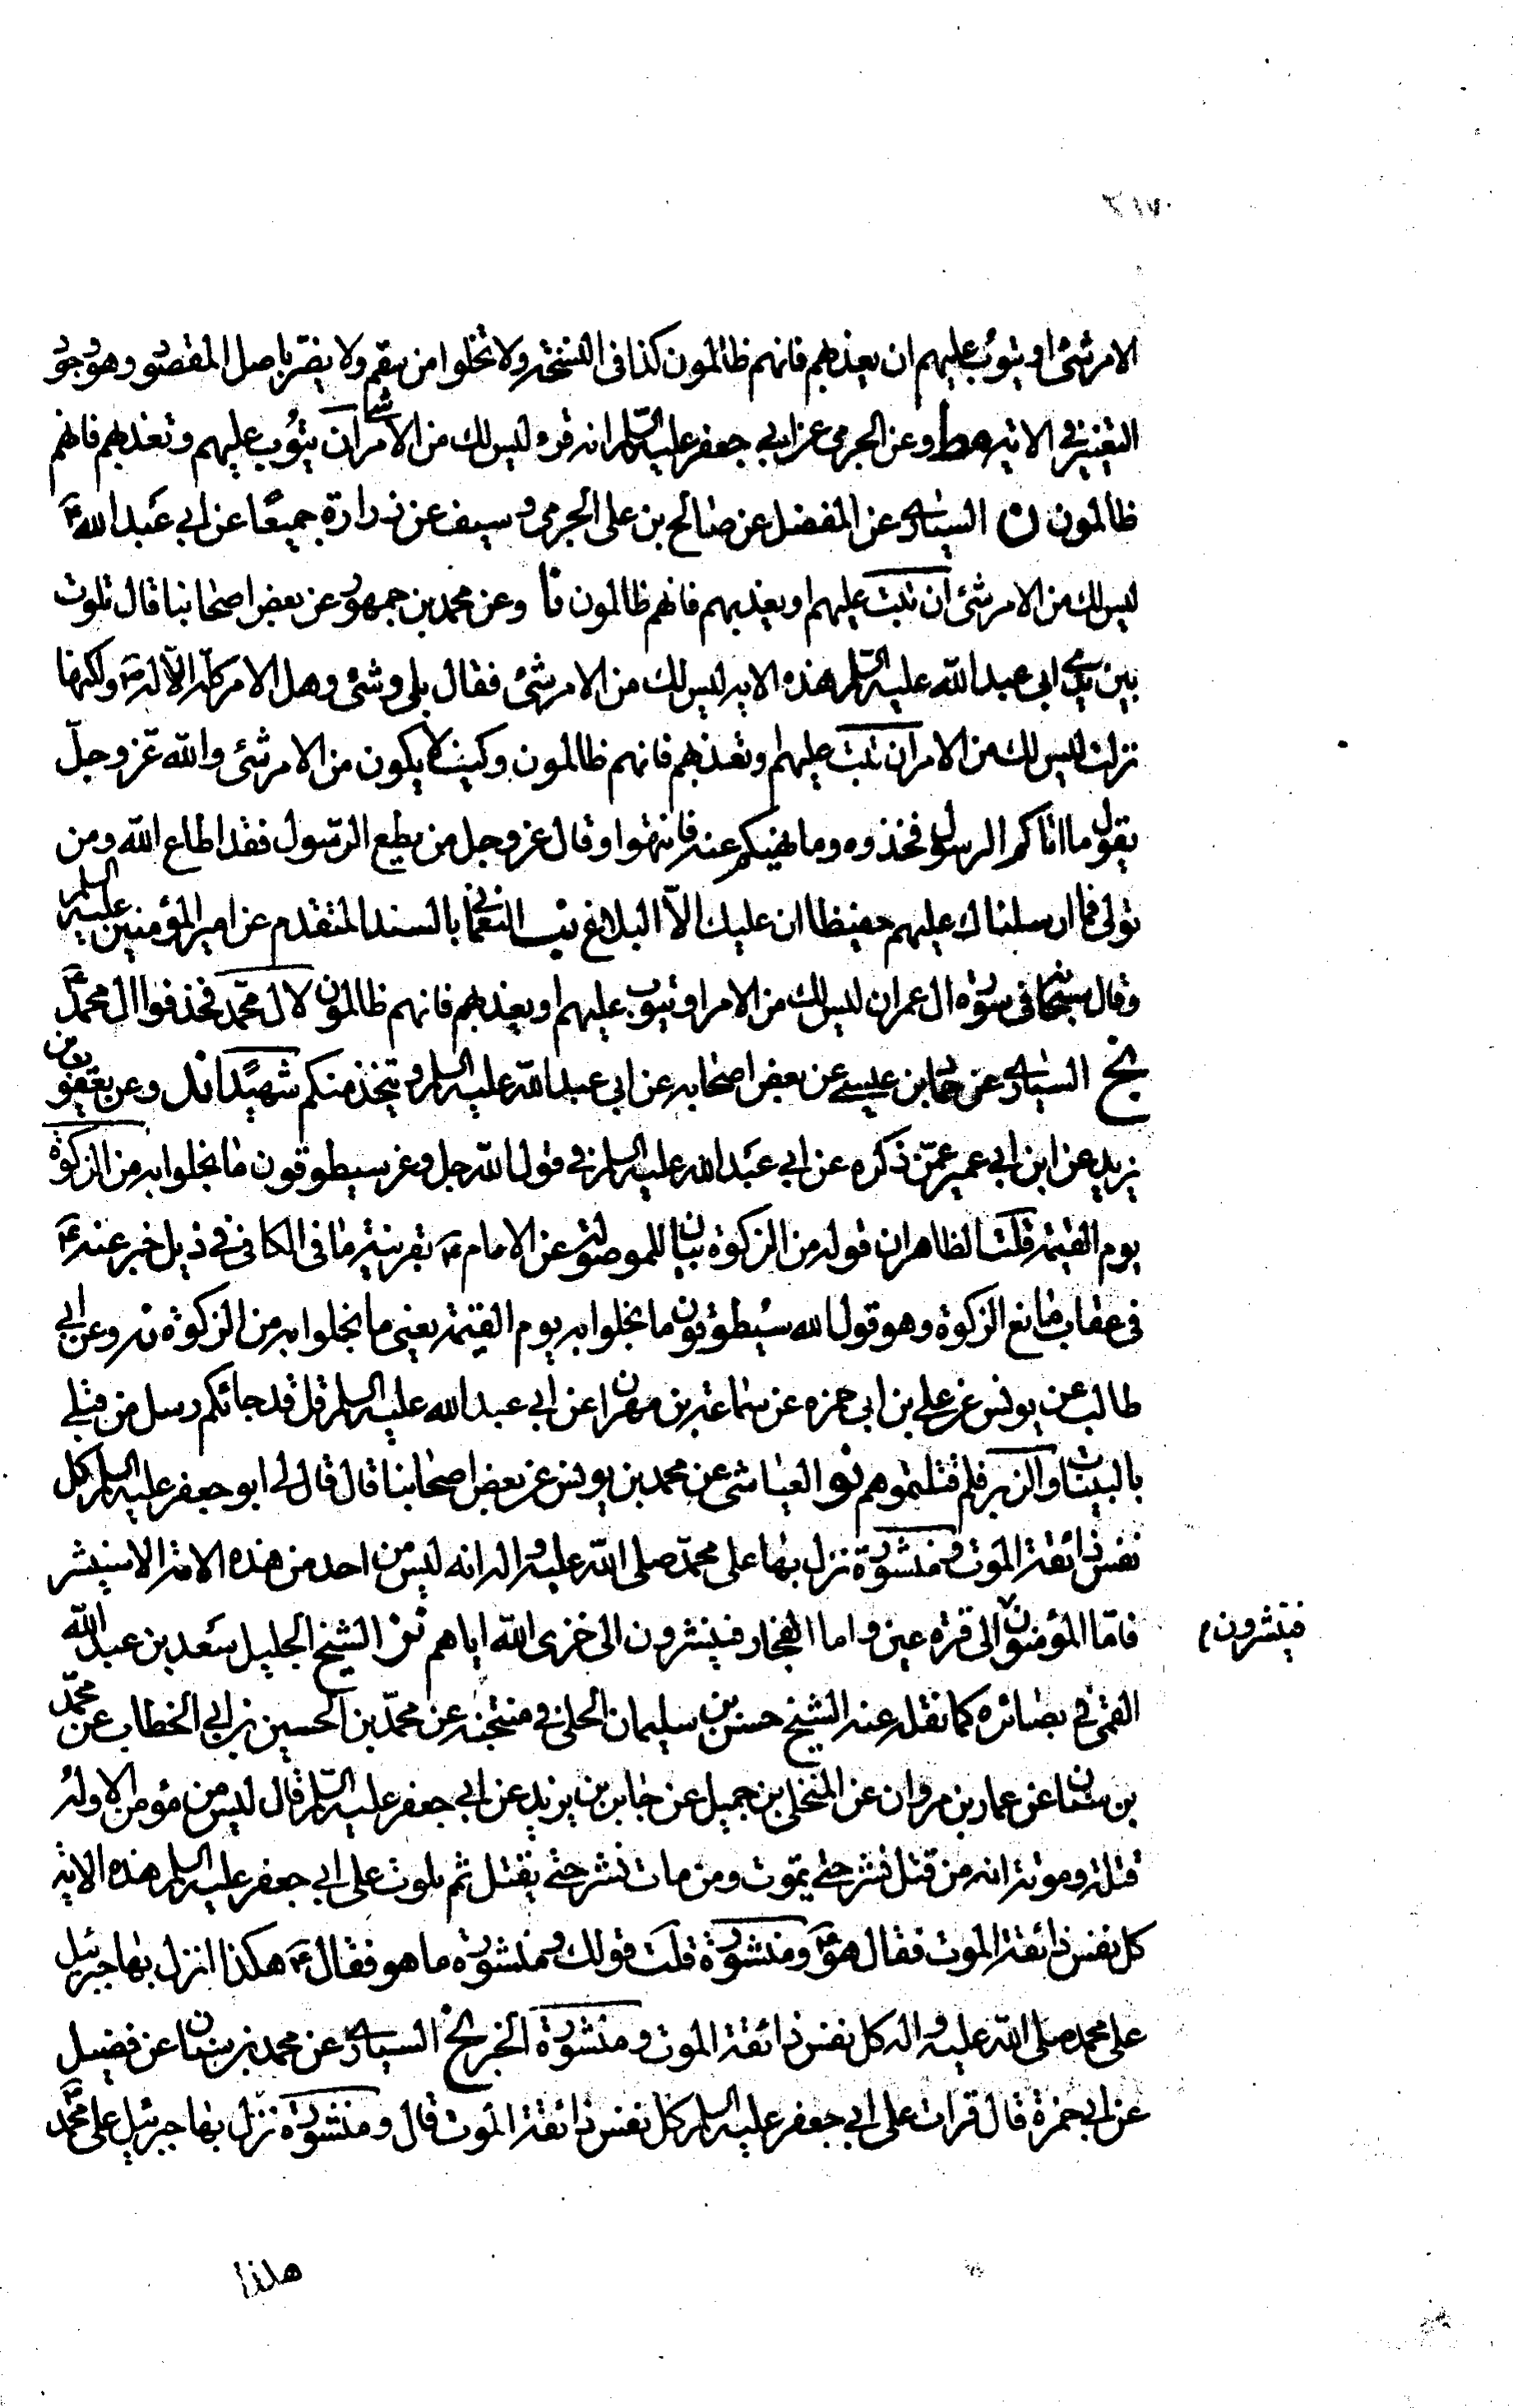 الامر شئ او يتوب عليهم ان يعذبهم فانهم ظالمون كذا فى النسخة ولا تخلوا من سقم ولا يضر باصل المقصود وهو وجود
التغيير فى الاية مط وعن الجرمى عن ابى جعفر عليه السلم انه قرء ليس لك من الامر شئ ان يتوب عليهم وتعذبهم فانهم
ظالمون ن السيارى عن المفضل عن صالح بن على الجرمى وسيف عن زرارة جميعا عن ابى عبد الله ع
ليس لك من الامر شئ ان تبت عليهم او يعذبهم فانهم ظالمون نا وعن محمد بن جمهور عن بعض اصحابنا قال تلوت
بين يدى ابى عبد الله عليه السلم هذه الاية ليس لك من الامر شئ فقال بلى وشئ وهل الامر كله الا له ص ولكنها
نزلت ليس لك من الامر ان تبت عليهم او تعذبهم فانهم ظالمون وكيف لا يكون من الامر شئ والله عز وجل
يقول ما اتاكم الرسول فخذوه وما نهيكم عنه فانتهوا وقال عز وجل من يطع الرسول فقد اطاع الله ومن
تولى فما ارسلناك عليهم حفيظا ان عليك الا البلاغ نب النعمانى بالسند المتقدم عن امير المؤمنين عليه السلم
وقال سبحانه فى سورة ال عمران ليس لك من الامر او يتوب عليهم او يعذبهم فانهم ظالمون لال محمد فحذفوا ال محمد ع
نج السيارى عن حماد بن عيسى عن بعض اصحابه عن ابى عبد الله عليه السلم ويتخذ منكم شهيدا ند وعن يعقوب بن
يزيد عن ابن ابى عمير عمن ذكره عن ابى عبد الله عليه السلم فى قول الله جل وعز سيطوقون ما بخلوا به من الزكوة
يوم القيمة قلت الظاهر ان قوله من الزكوة بيان للموصولة عن الامام ع بقرينة ما فى الكافى فى ذيل خبر عنه ع
فى عقاب مانع الزكوة وهو قول الله سيطوقون ما بخلوا به يوم القيمة يعنى ما بخلوا به من الزكوة نه وعن ابى
طالب عن يونس عن على بن ابى حمزه عن سماعة بن مهران عن ابى عبد الله عليه السلم قل قد جائكم رسل من قبلى
بالبينات والزبر فلم قتلتموهم نو العياشى عن محمد بن يونس عن بعض اصحابنا قال قال لى ابو جعفر عليه السلم كل
نفس ذائقة الموت ومنشورة نزل بها على محمد صلى الله عليه واله انه ليس من احد من هذه الامة الا سينشر
فاما المؤمنون الى قرة عين واما الفجار فينشرون الى خزى الله اياهم نز الشيخ الجليل سعد بن عبد الله
فينشرون م
القمى فى بصائره كما نقله عنه الشيخ حسن بن سليمان الحلى فى منتخبه عن محمد بن الحسين بن ابى الخطاب عن محمد
بن سنان عن عمار بن مروان عن المنخل بن جميل عن جابر بن يزيد عن ابى جعفر عليه السلم قال ليس من مؤمن الا وله
قتلة وموتة انه من قتل نشر حتى يموت ومن مات نشر حتى يقتل ثم تلوت على ابى جعفر عليه السلم هذه الاية
كل نفس ذائقة الموت فقال هو ع ومنشورة قلت قولك ومنشورة ما هو فقال ع هكذا انزل بها جبرئيل
على محمد صلى الله عليه واله كل نفس ذائقة الموت ومنشورة الخبر نح السيارى عن محمد بن سنان عن فضيل
عن ابى حمزة قال قرات على ابى جعفر عليه السلم كل نفس ذائقة الموت قال ومنشورة نزل بها جبرئيل على محمد ص
هكذا